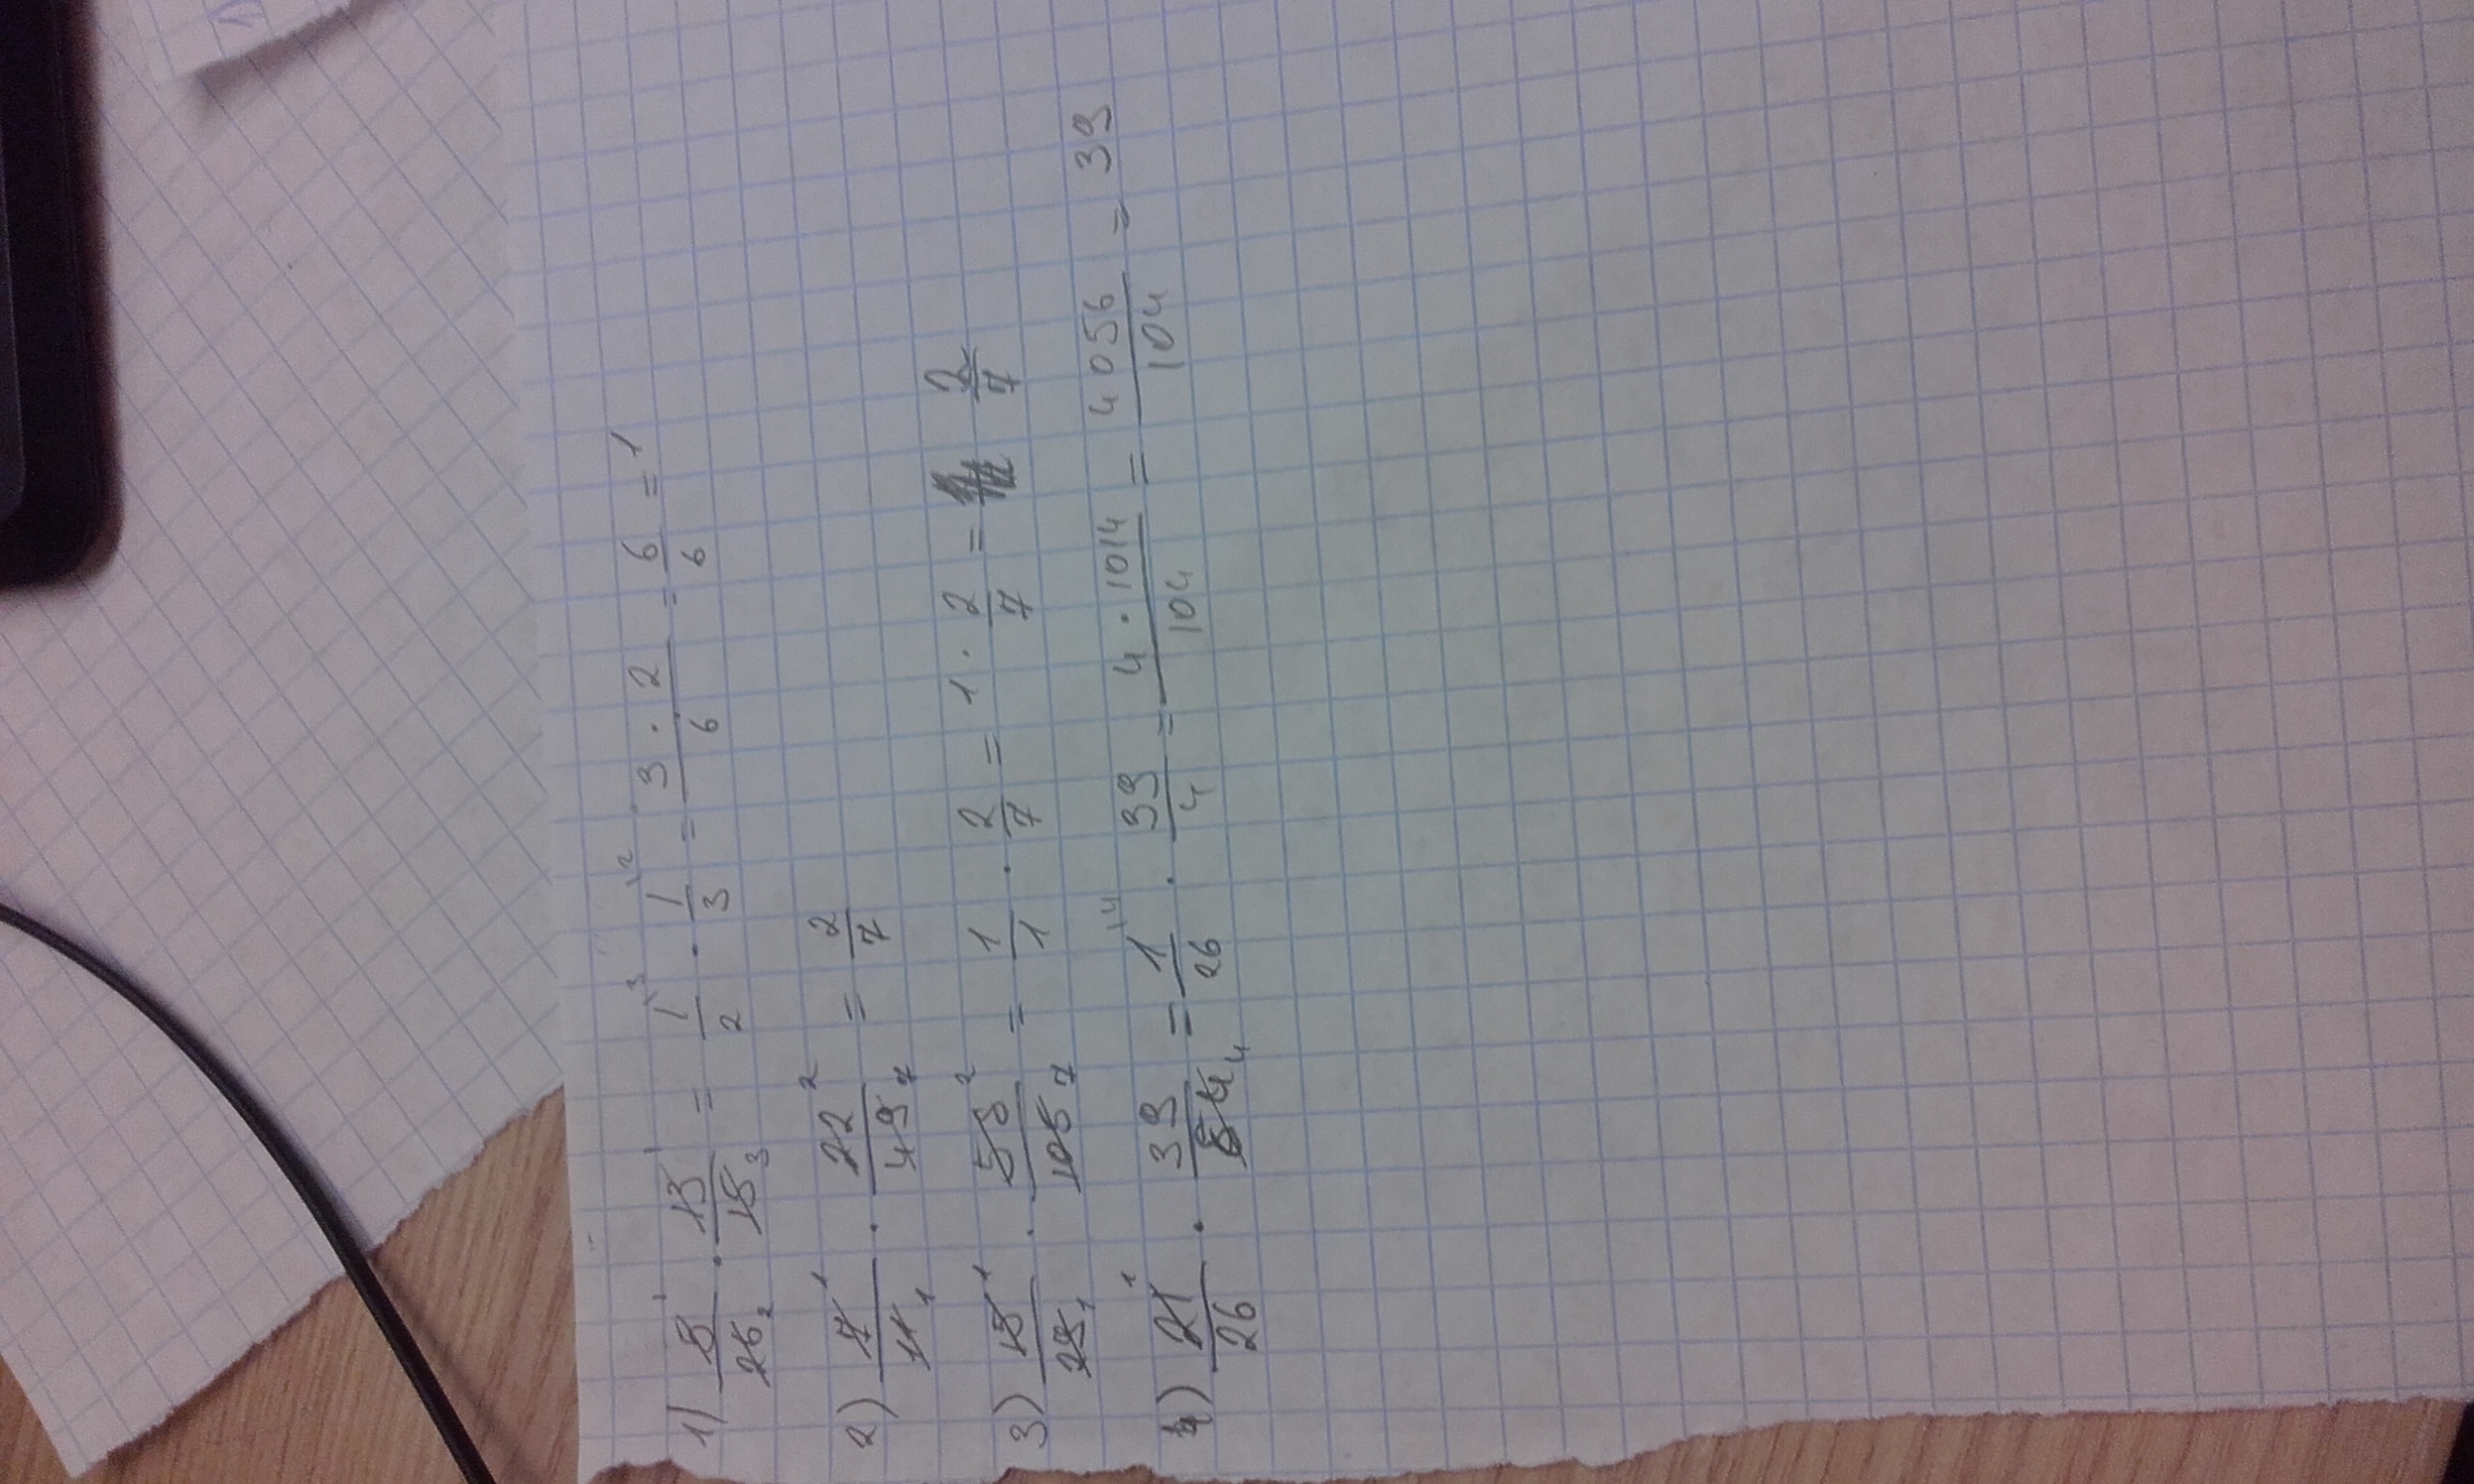 1) 5/26₂ · 13/15₃ = 1/2 · 1/3 = 3 · 2/6 = 6/6 = 1
2) 7/11₁ · 22²/49₇ = 2/7
3) 15¹/29₁ · 58²/105₇ = 1/1 · 2/7 = 1 · 2/7 = 2/7
4) 21¹/26 · 39/84₄ = 1/26 · 39/4 = 4 · 1014/104 = 4056/104 = 39